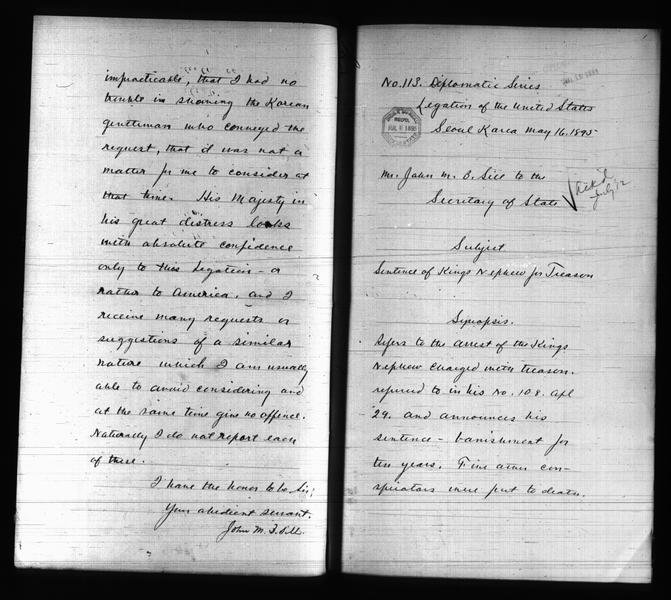 impracticable, that I had no
trouble in showing the Korean
gentleman who conveyed the
request, that it was not a
matter for me to consider at
that time. His Majesty in
his great distress looks
with absolute confidence
only to this Legation - or
rather to America, and I
receive many requests or
suggestions of a similar
nature which I am usually
able to avoid considering and
at the same time give no offence.
Naturally I do not report each
of these.
I have the honor to be Sir,
Your obedient servant.
John M. B. Sill.
No. 113. Diplomatic Series
Legation of the United States
Seoul Korea May 16, 1895
Mr. John M. B. Sill to the
Secretary of State
Ack'd
July 12
Subject
Sentence of Kings Nephew for Treason
Synopsis.
Refers to the arrest of the Kings
Nephew charged with treason.
referred to in his No. 108. Apl
29. and announces his
sentence - banishment for
ten years. Five other con-
spirators were put to death.